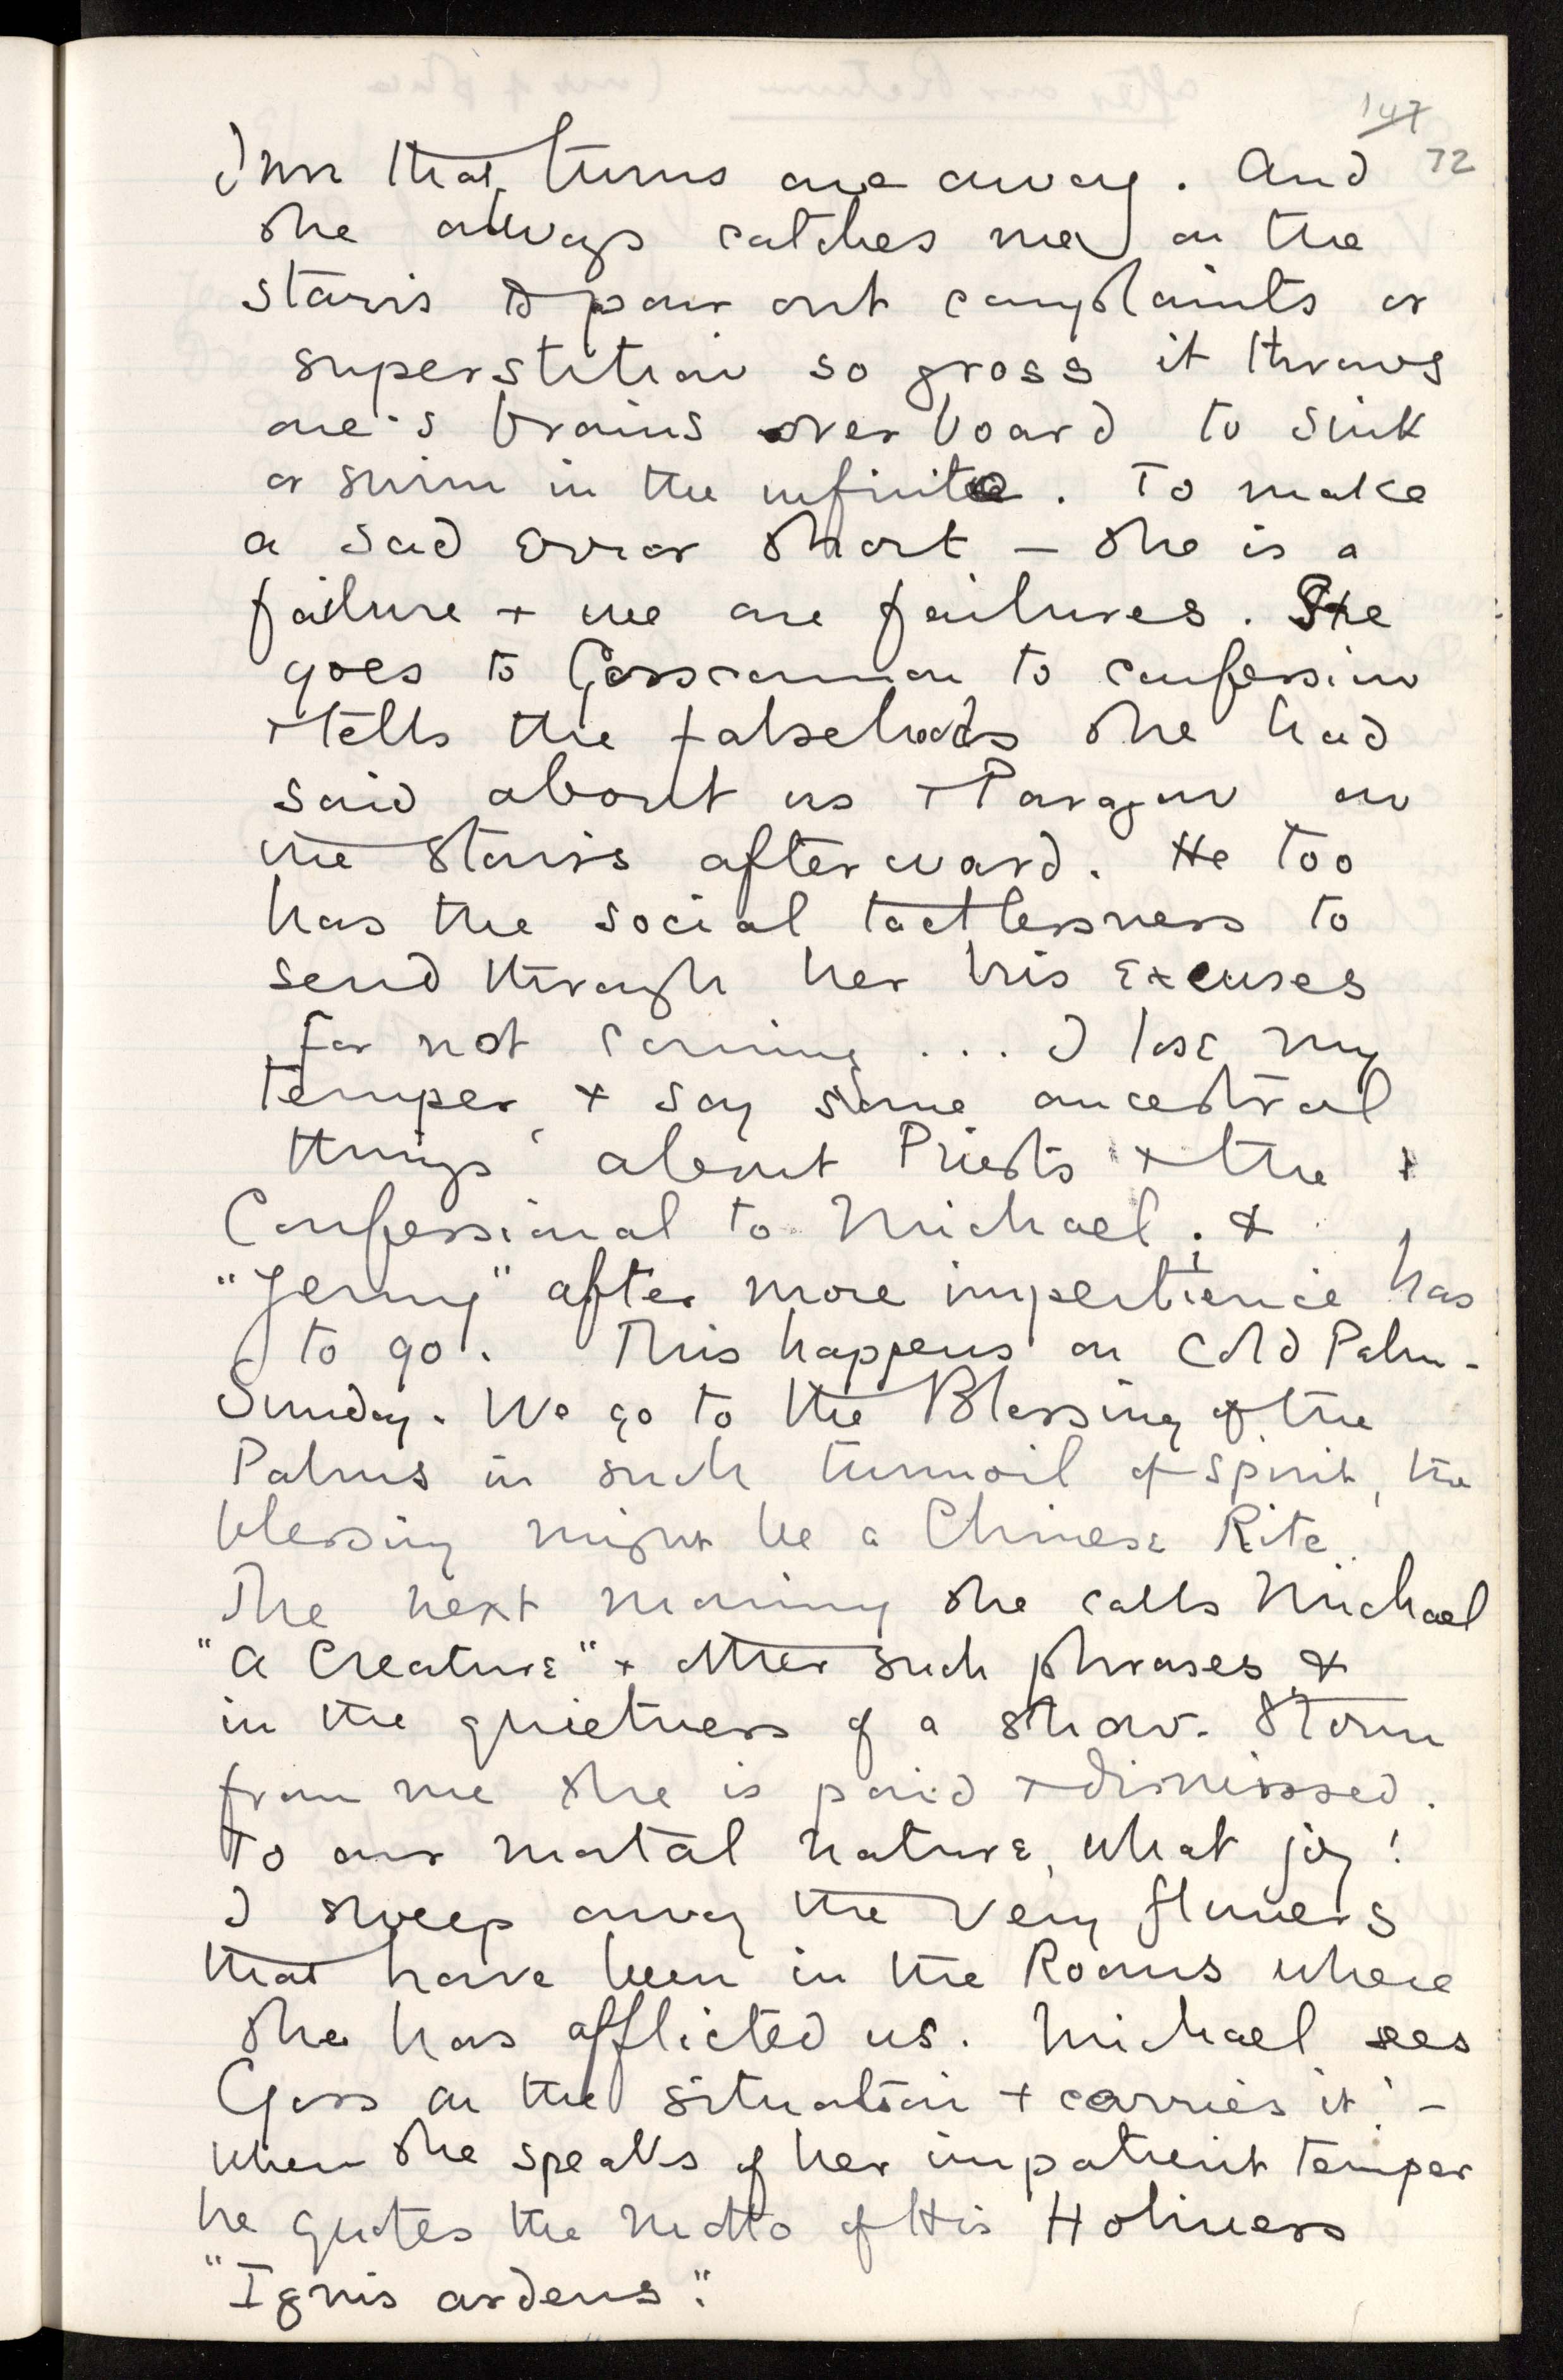 147
72
that turns one away. And
she always catches me on the
stairs to pour out complaints or
superstition so gross it throws
one's brains overboard to sink
or swim in the infinite. To make
a sad error short – she is a
failure + we are failures. She
goes to Gosscannon to confession
+ tells the falsehoods she had
said about us + Paragon on
the stairs afterward. He too
has the social tactlessness to
send through her his excuses
for not coming ... I lose my
temper + say some ancestral
things about Priests + the +
Confessional to Michael; +
"Jenny" after more impertinence has
to go. This happens on cold Palm-
Sunday. We go to the Blessing of the
Palms in such turmoil of spirit, the
blessing might be a Chinese Rite.
The next morning she calls Michael
"A Creature" + other such phrases &
in the quietness of a snow-storm
from me she is paid + dismissed.
To our mortal nature, what joy!
I sweep away the very flowers
that have been in the Rooms where
she has afflicted us. Michael sees
Goss on the situation + carries it! –
when she speaks of her impatient temper
he quotes the motto of His Holiness
"Ignis ardens".